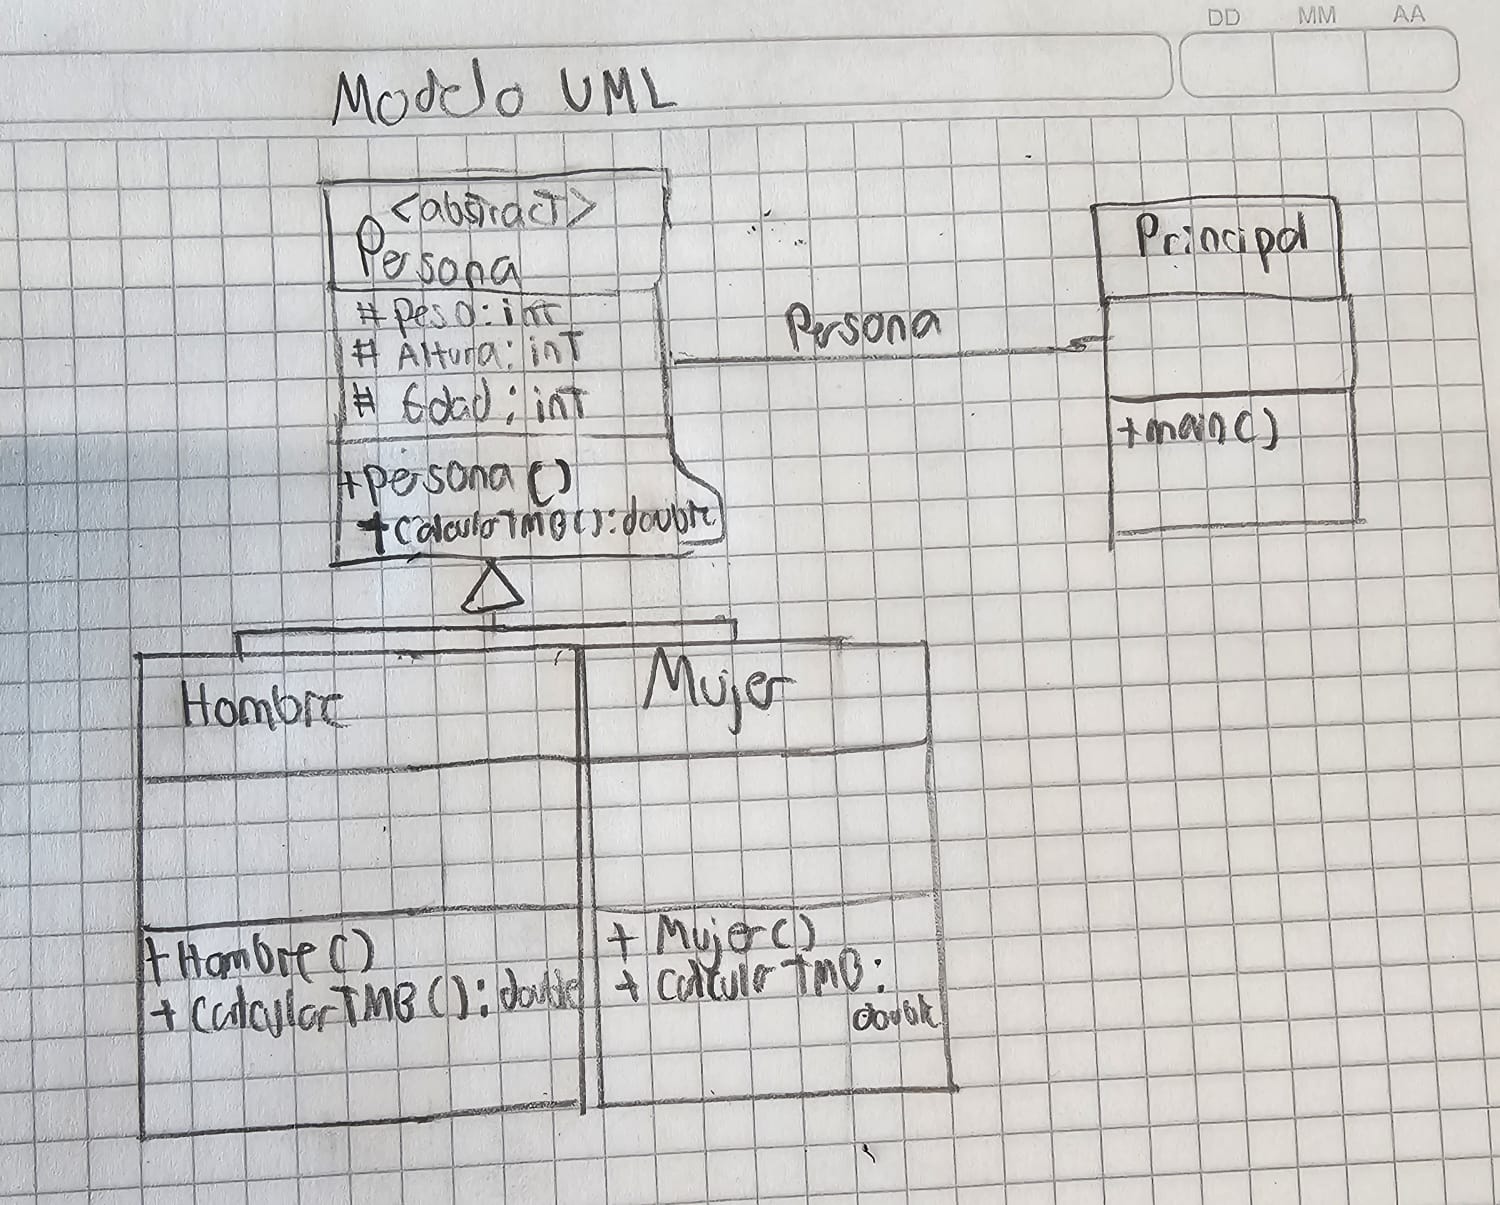 DD MM AA
Modelo UML
<abstract>
Persona
# Peso: int
# Altura: int
# Edad: int
+persona ()
+CalculoTMB(): double
Persona
Principal
+main()
Hombre
+Hombre()
+ CalcularTMB(): double
Mujer
+ Mujer()
+ Calcular TMB:
double